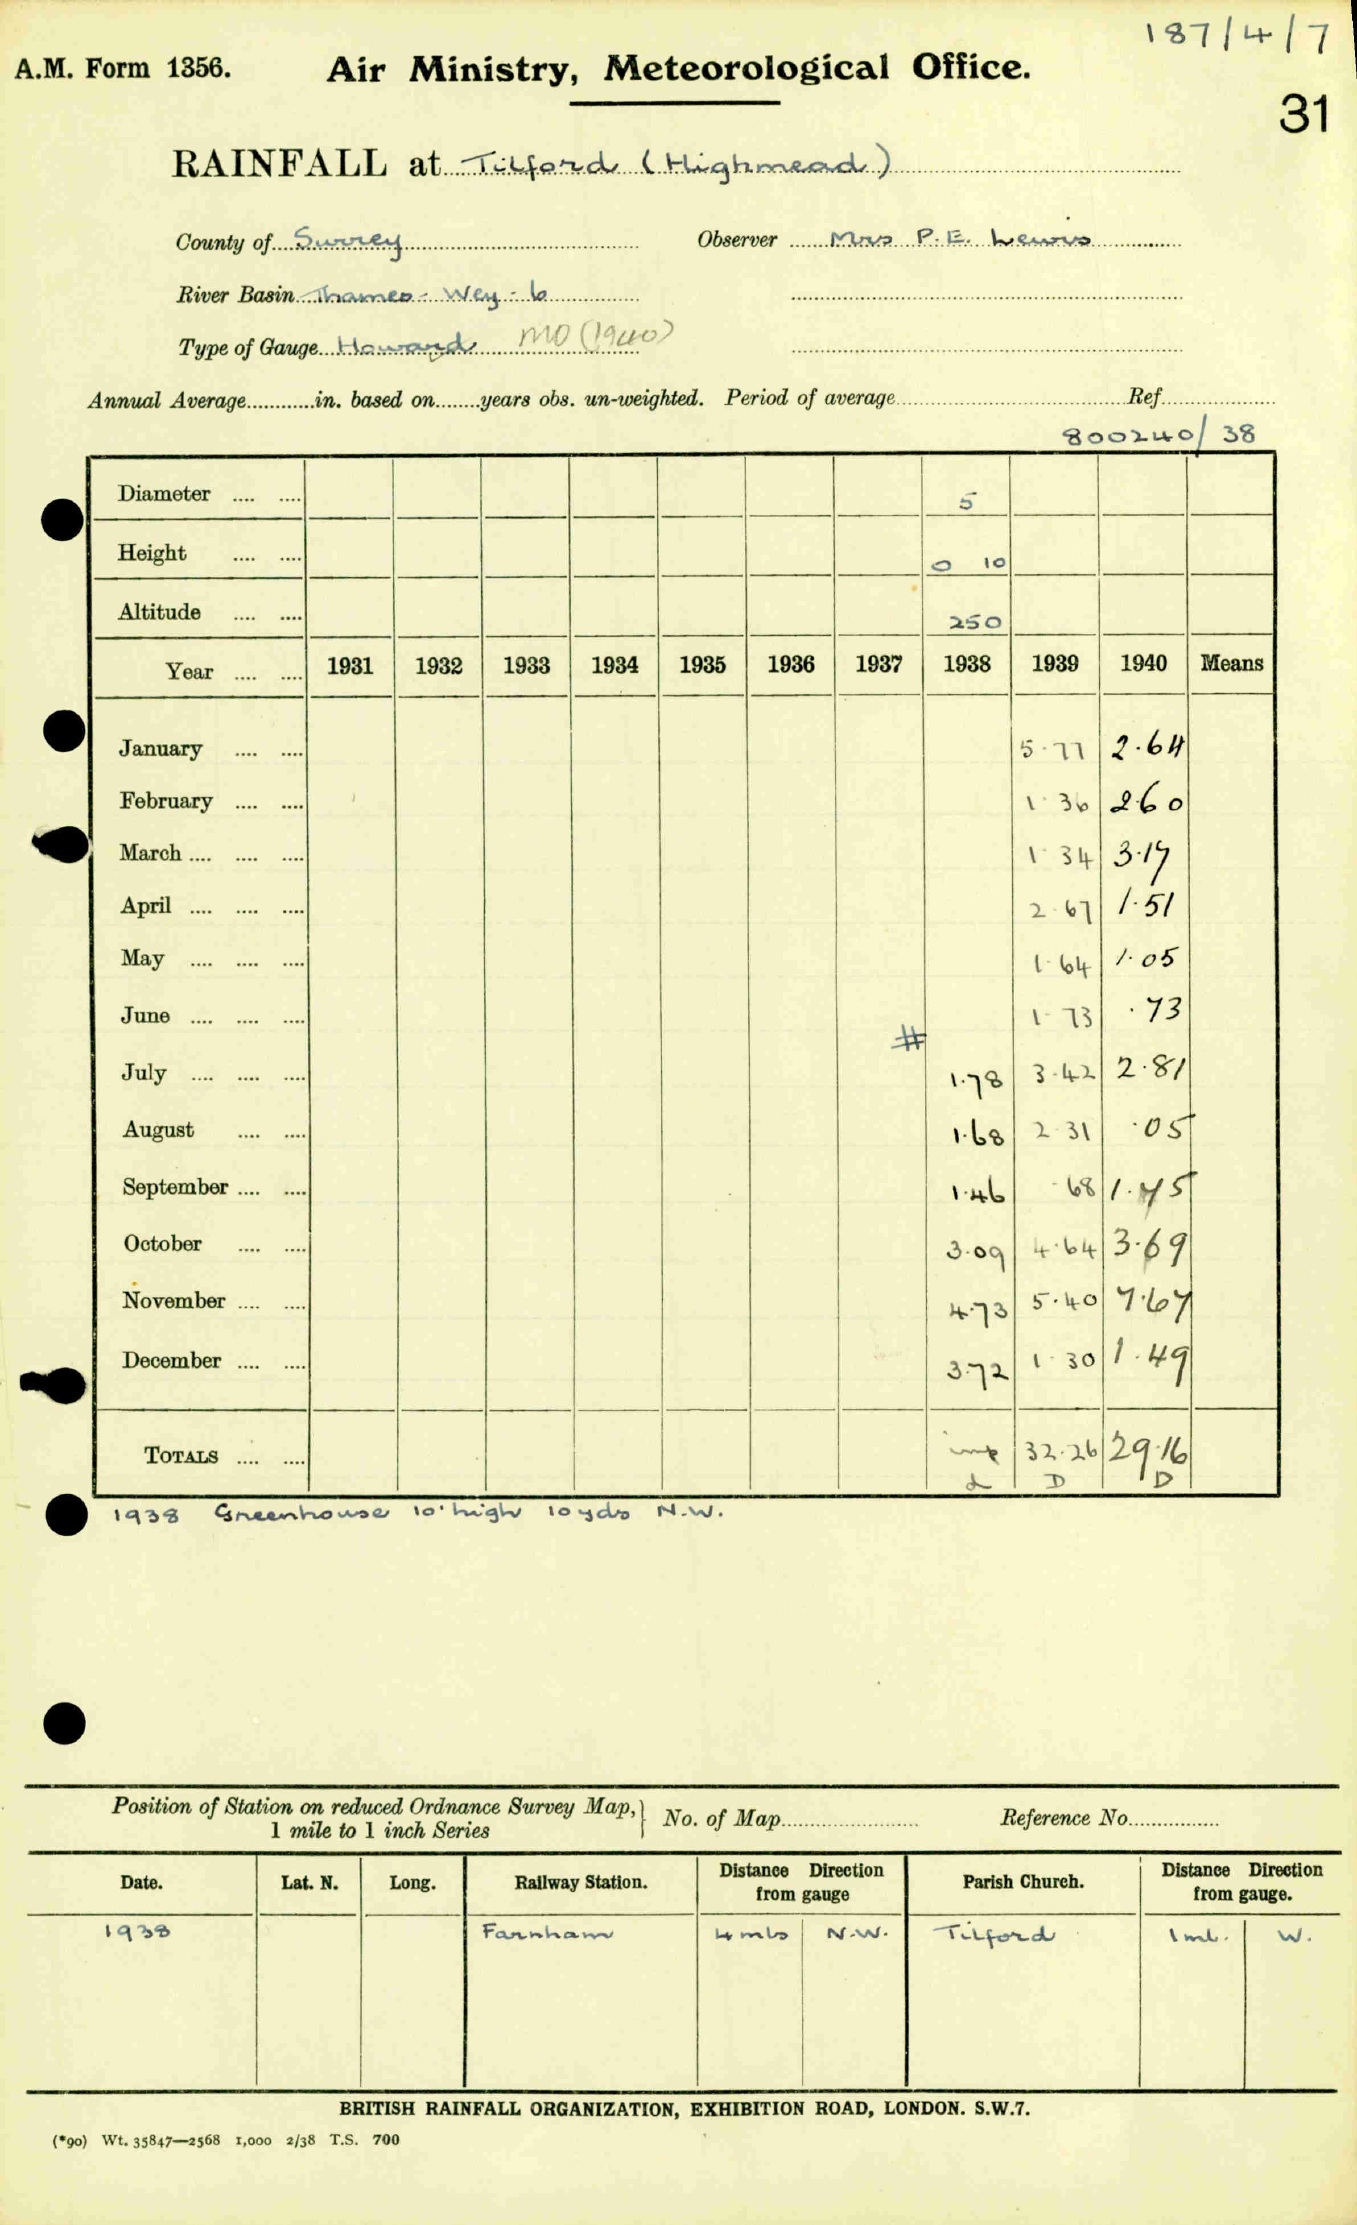 187/4/7
A.M. Form 1356. Air Ministry, Meteorological Office.
31
RAINFALL at Tilford (Highmead)
County of Surrey Observer Mrs P.E. Lewis
River Basin Thames - Wey - 6
Type of Gauge Howard MO (1940)
Annual Average............in. based on........years obs. un-weighted. Period of average.......... Ref..........
800240/38
Diameter .... .... 5
Height .... .... 0 10
Altitude .... .... 250
Year .... .... 1931 1932 1933 1934 1935 1936 1937 1938 1939 1940 Means
January .... .... 5.77 2.64
February .... .... 1.36 2.60
March .... .... .... 1.34 3.17
April .... .... .... 2.67 1.51
May .... .... .... 1.64 1.05
June .... .... .... 1.73 .73
#
July .... .... .... 1.78 3.42 2.81
August .... .... 1.68 2.31 .05
September .... .... 1.46 .68 1.75
October .... .... 3.09 4.64 3.69
November .... .... 4.73 5.40 7.67
December .... .... 3.72 1.30 1.49
TOTALS .... .... imp 32.26 29.16
D D
1938 Greenhouse 10' high 10 yds N.W.
Position of Station on reduced Ordnance Survey Map, } No. of Map.......... Reference No..........
1 mile to 1 inch Series
Date. Lat. N. Long. Railway Station. Distance Direction from gauge Parish Church. Distance Direction from gauge.
1938 Farnham 4 mls N.W. Tilford 1 ml. W.
BRITISH RAINFALL ORGANIZATION, EXHIBITION ROAD, LONDON. S.W.7.
(*90) Wt. 35847—2568 1,000 2/38 T.S. 700